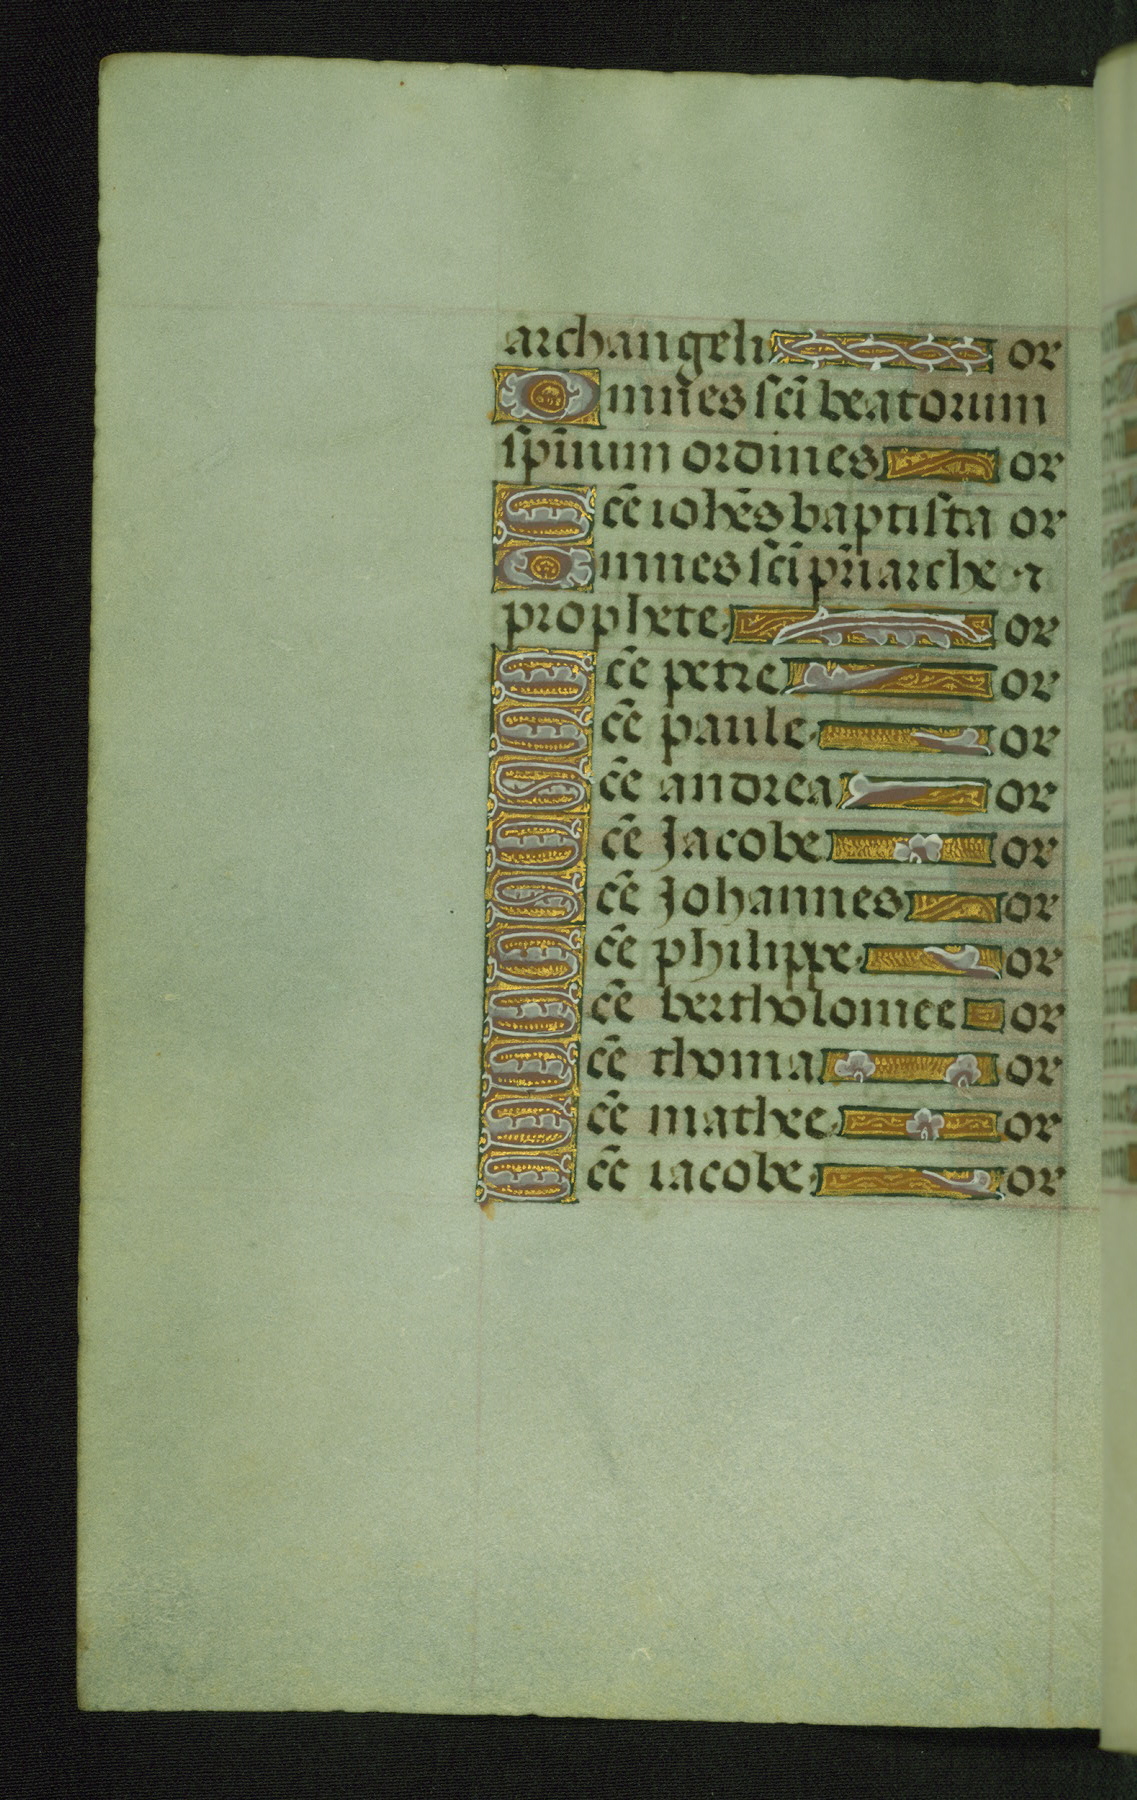 archangeli or
Omnes sc̄i beatorum
sp̄ituum ordines or
Sc̄e ioh̄es baptista or
Omnes sc̄i pr̄iarche ⁊
prophete or
Sc̄e petre or
Sc̄e paule or
Sc̄e andrea or
Sc̄e Jacobe or
Sc̄e Johannes or
Sc̄e philippe or
Sc̄e bertholomee or
Sc̄e thoma or
Sc̄e mathee or
Sc̄e iacobe or